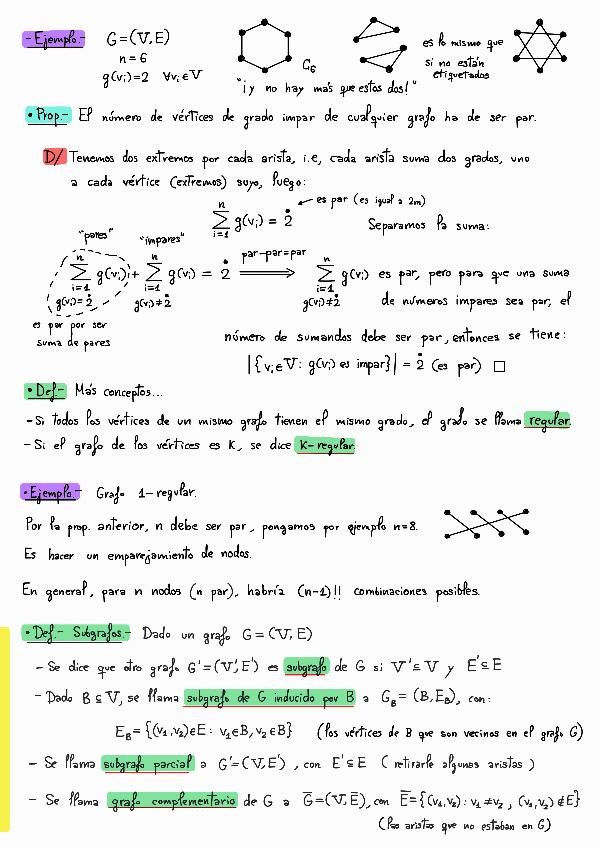 - Ejemplo.- G=(V,E)
n=6
g(vᵢ)=2 ∀vᵢ∈V
C₆
es lo mismo que
si no están
etiquetados
"¡y no hay más que estos dos!"
• Prop.- El número de vértices de grado impar de cualquier grafo ha de ser par.
D/ Tenemos dos extremos por cada arista, i.e, cada arista suma dos grados, uno
a cada vértice (extremos) suyo, luego:
n
∑ g(vᵢ) = 2̇ ← es par (es igual a 2m)
i=1
Separamos la suma:
"pares" "impares"
n n par-par=par n
∑ g(vᵢ) + ∑ g(vᵢ) = 2̇ ⟹ ∑ g(vᵢ) es par, pero para que una suma
i=1 i=1 i=1
g(vᵢ)=2̇ g(vᵢ)≠2̇ g(vᵢ)≠2̇ de números impares sea par, el
es par por ser
suma de pares
número de sumandos debe ser par, entonces se tiene:
|{vᵢ∈V: g(vᵢ) es impar}| = 2̇ (es par) □
• Def.- Más conceptos...
- Si todos los vértices de un mismo grafo tienen el mismo grado, el grado se llama regular.
- Si el grafo de los vértices es K, se dice K-regular.
• Ejemplo.- Grafo 1-regular.
Por la prop. anterior, n debe ser par, pongamos por ejemplo n=8.
Es hacer un emparejamiento de nodos.
En general, para n nodos (n par), habría (n-1)!! combinaciones posibles.
• Def.- Subgrafos.- Dado un grafo G=(V,E)
- Se dice que otro grafo G'=(V',E') es subgrafo de G si V'⊆V y E'⊆E
- Dado B⊆V, se llama subgrafo de G inducido por B a G_B=(B,E_B), con:
E_B={(v₁,v₂)∈E: v₁∈B, v₂∈B} (los vértices de B que son vecinos en el grafo G)
- Se llama subgrafo parcial a G'=(V,E'), con E'⊆E (retirarle algunas aristas)
- Se llama grafo complementario de G a G̅=(V,E̅), con E̅={(v₁,v₂): v₁≠v₂, (v₁,v₂)∉E}
(las aristas que no estaban en G)